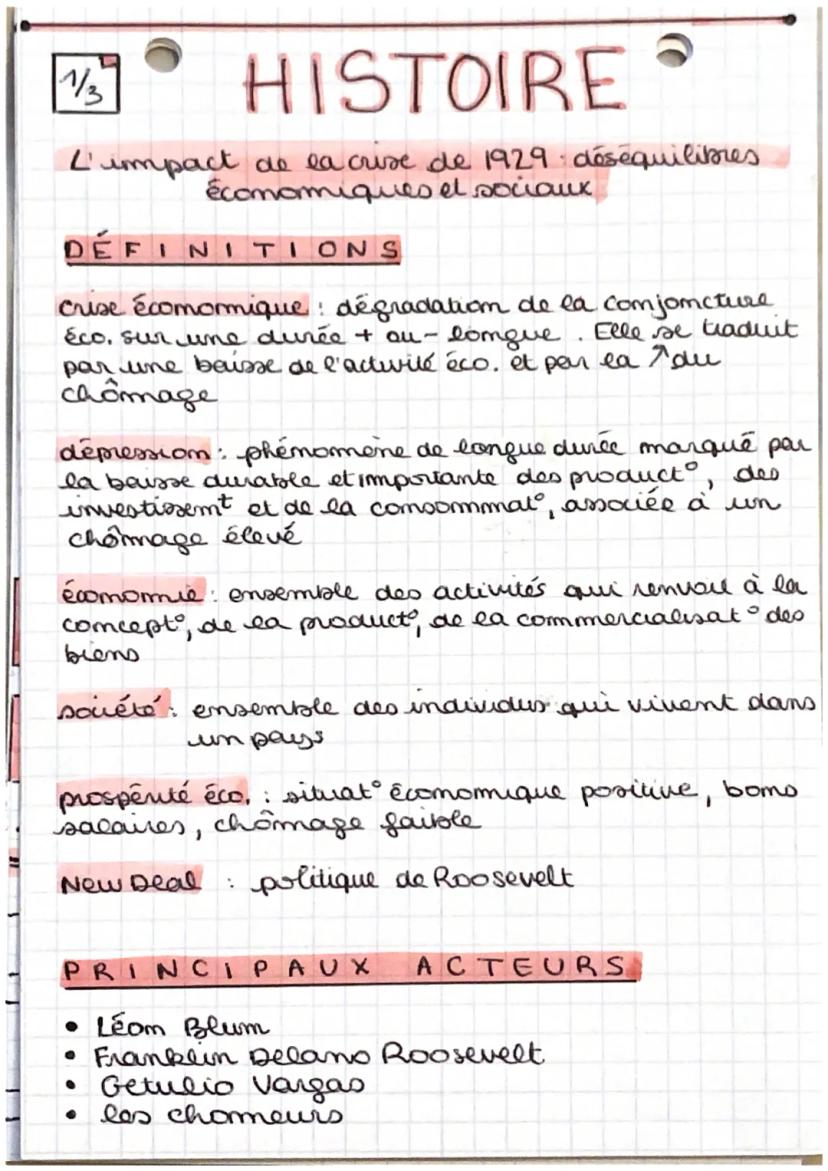 1/3
HISTOIRE
L'impact de la crise de 1929 : déséquilibres
économiques et sociaux
DÉFINITIONS
crise économique : dégradation de la conjoncture
éco. sur une durée + ou - longue. Elle se traduit
par une baisse de l'activité éco. et par la ↗ du
chômage
dépression : phénomène de longue durée marqué par
la baisse durable et importante des product°, des
investissemt et de la consommat°, associée à un
chômage élevé
économie : ensemble des activités qui renvoie à la
concept°, de la product°, de la commercialisat° des
biens
société : ensemble des individus qui vivent dans
un pays
prospérité éco. : situat° économique positive, bons
salaires, chômage faible
New Deal : politique de Roosevelt
PRINCIPAUX ACTEURS
• Léon Blum
• Franklin Delano Roosevelt
• Getulio Vargas
• les chomeurs